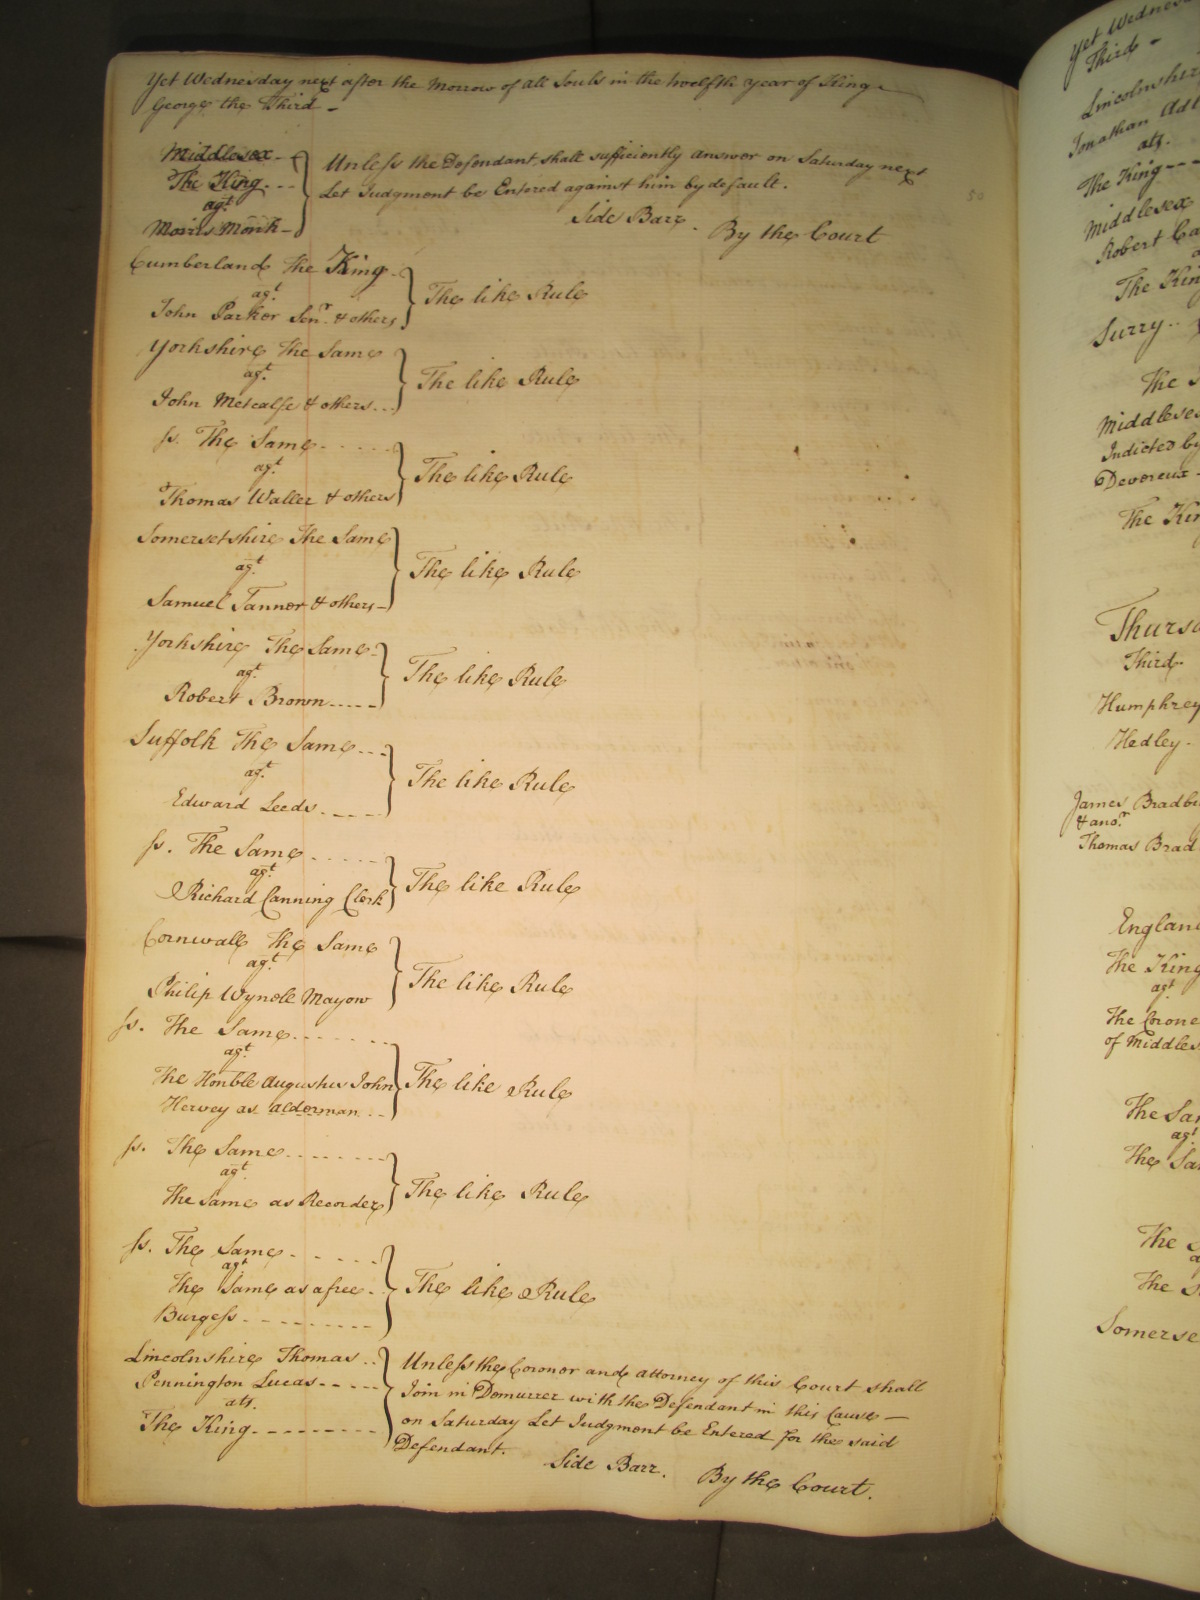 Yet Wednesday next after the Morrow of all Souls in the twelfth year of King
George the Third -
Middlesex -
The King - - -
agt
Morris Monk -
Unless the Defendant shall sufficiently answer on Saturday next
Let Judgment be Entered against him by default.
Side Barr. By the Court
Cumberland The King -
agt
John Parker Senr. & others
The like Rule
Yorkshire The Same
agt
John Metcalfe & others...
The like Rule
ss. The Same - - - - -
agt
Thomas Waller & others
The like Rule
Somersetshire The Same
agt
Samuel Tanner & others -
The like Rule
Yorkshire The Same -
agt
Robert Brown - - - - -
The like Rule
Suffolk The Same - - -
agt
Edward Leeds - - - -
The like Rule
ss. The Same - - - - -
agt
Richard Canning Clerk
The like Rule
Cornwall The Same
agt
Philip Wynole Mayow
The like Rule
ss. The Same - - - - - -
agt
The Honble Augustus John
Hervey as alderman - -
The like Rule
ss. The Same - - - - - - -
agt
The Same as Recorder
The like Rule
ss. The Same - - - - -
agt
The Same as a free -
Burgess - - - - - - - - -
The like Rule
Lincolnshire Thomas - -
Pennington Lucas - - - -
ats.
The King - - - - - - - - -
Unless the Coroner and attorney of this Court shall
Join in Demurrer with the Defendant in this Cause -
on Saturday Let Judgment be Entered for the said
Defendant.
Side Barr. By the Court.
50
Yet Wednes
Third -
Lincolnshir
Jonathan
ats.
The King - - -
Middlesex
Robert
The Kin
Surry - -
The
Middlese
Indicted by
Devereux -
The Kin
Thurs
Third
Humphrey
Hedley -
James Bradb
& anor.
Thomas Brad
Englan
The King
agt
The Corone
of Middles
The Sa
agt
The Sa
The
The
Somerse